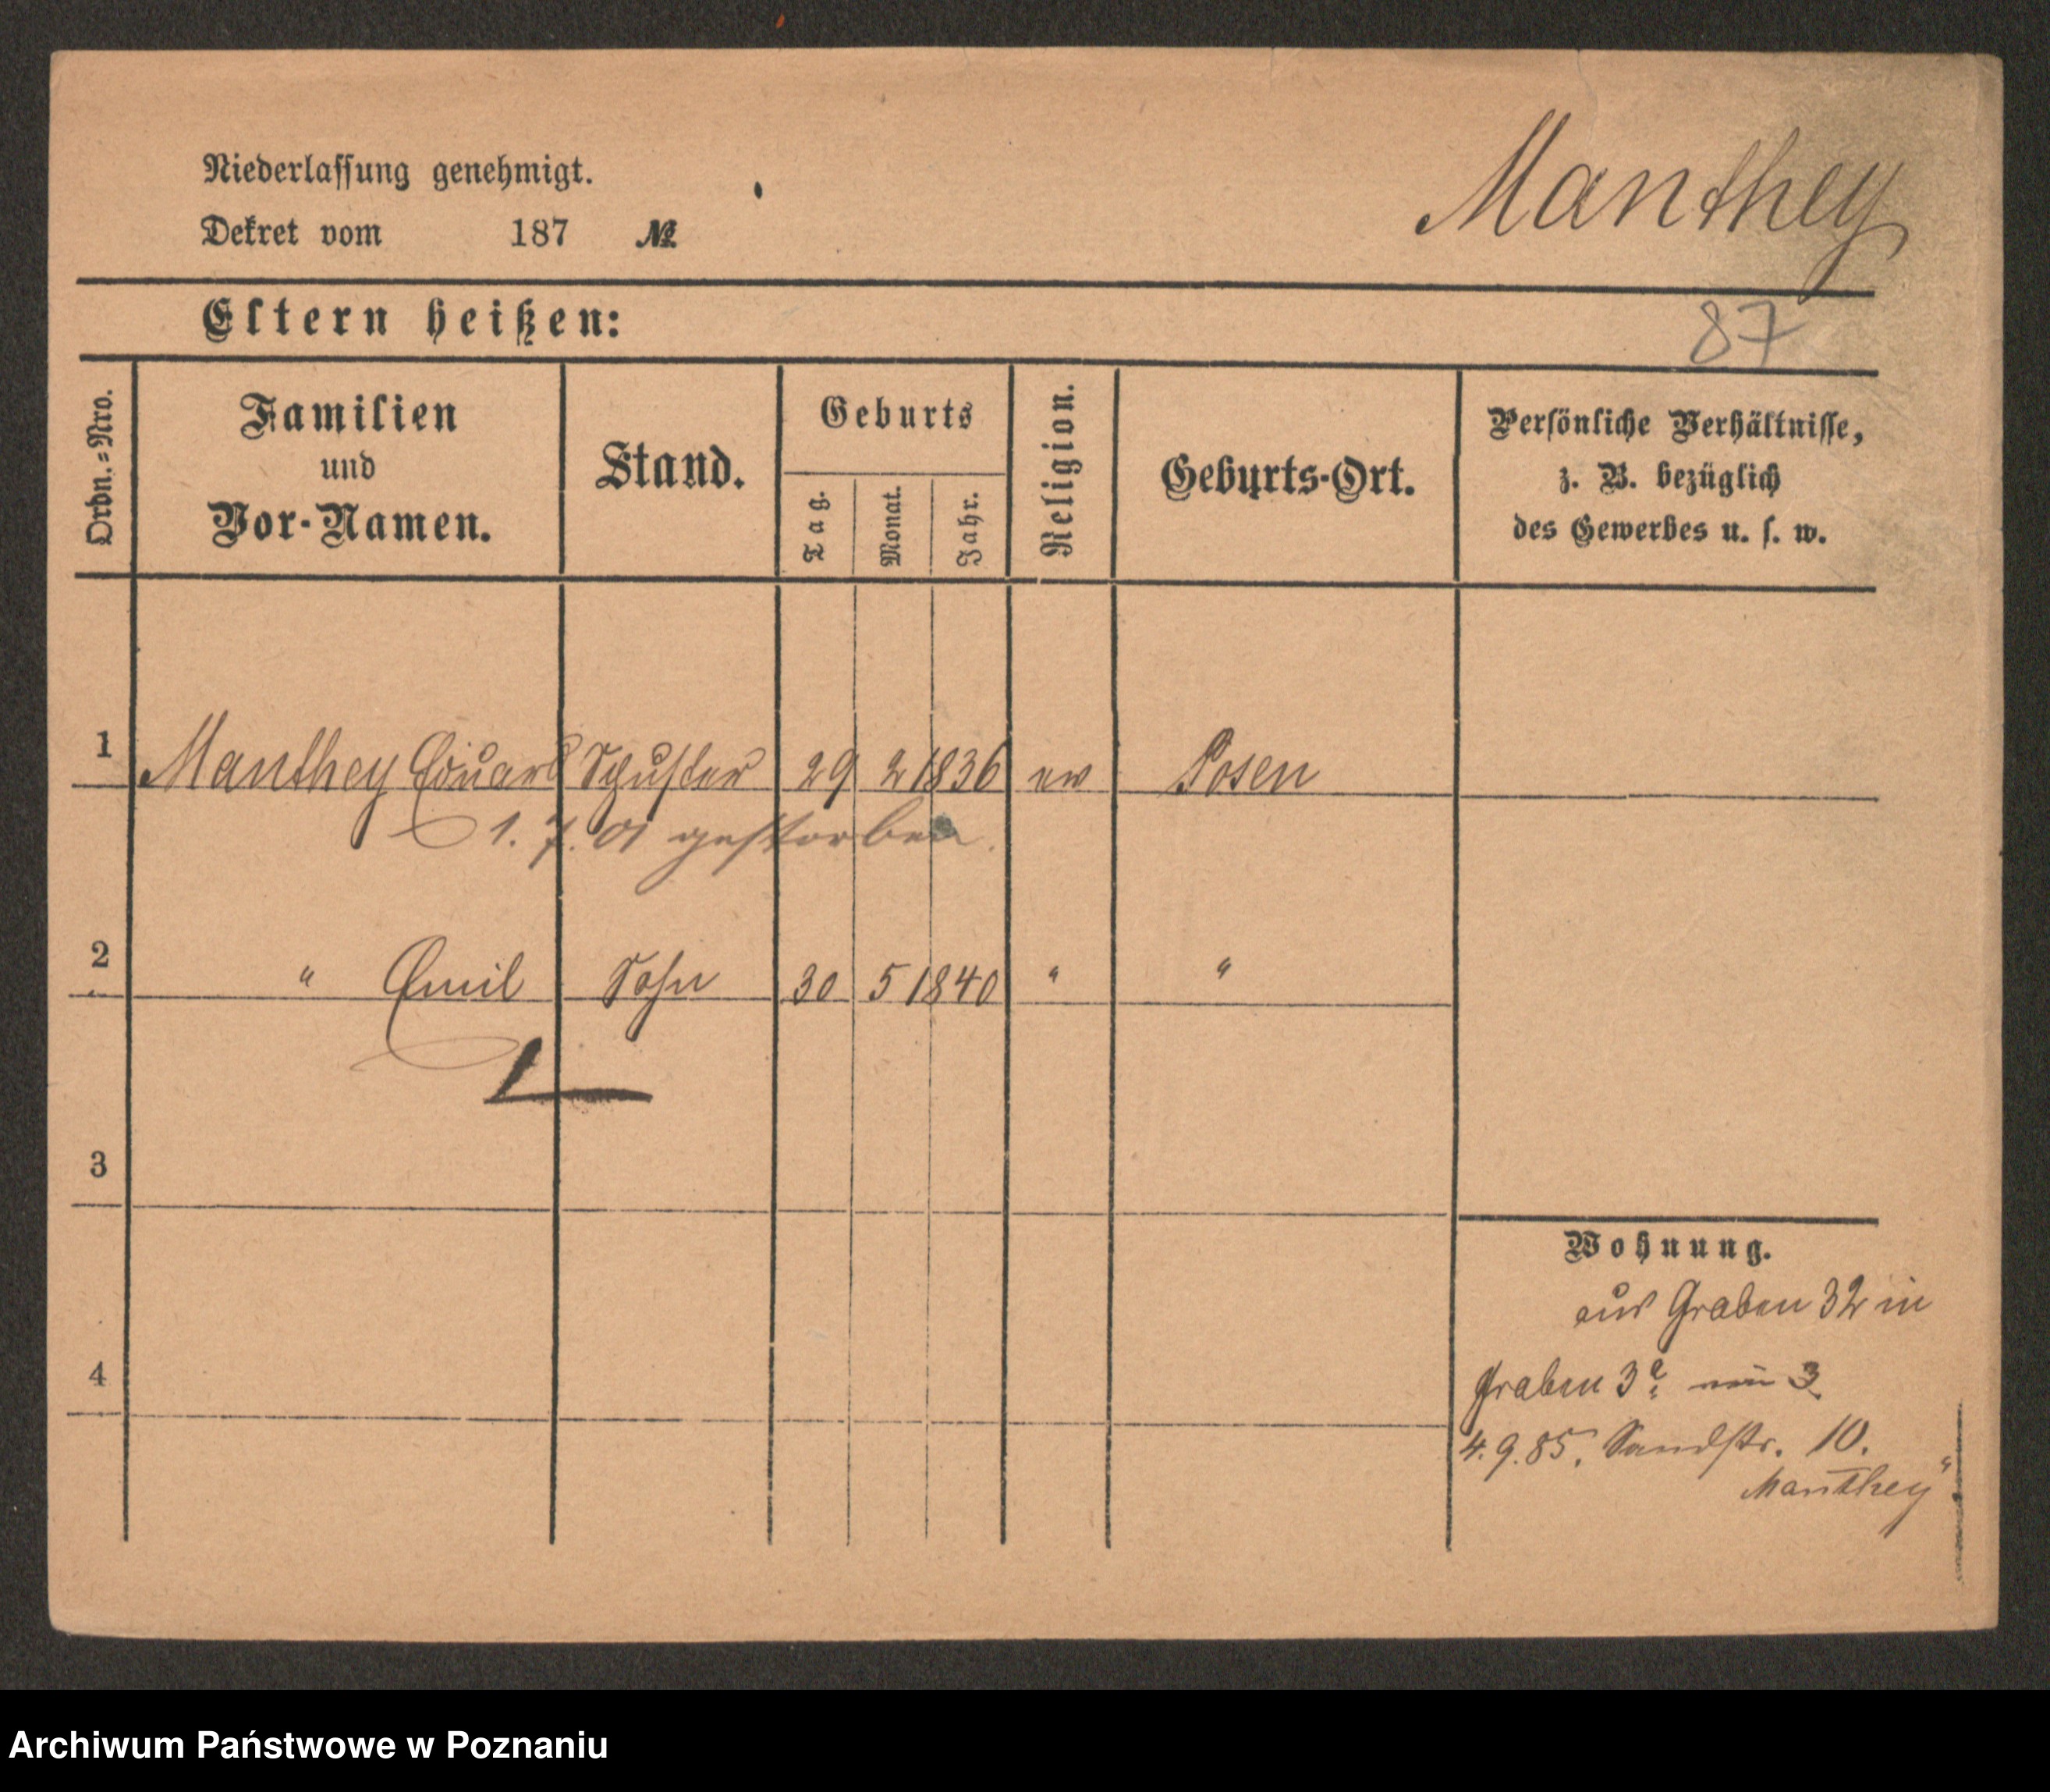 Niederlassung genehmigt.
Dekret vom 187 №
Manthey
Eltern heißen:
87
Ordn.=Nro.
Familien
und
Vor-Namen.
Stand.
Geburts
Tag.
Monat.
Jahr.
Religion.
Geburts-Ort.
Persönliche Verhältnisse,
z. B. bezüglich
des Gewerbes u. s. w.
1 Manthey Eduard Schuster 29 2 1836 ev Posen
1. 7. 01 gestorben.
2 " Emil Sohn 30 5 1840 " "
3
Wohnung.
aus Graben 32 in
4
Graben 3 3
4. 9. 85. Sandstr. 10.
Manthey"
Archiwum Państwowe w Poznaniu